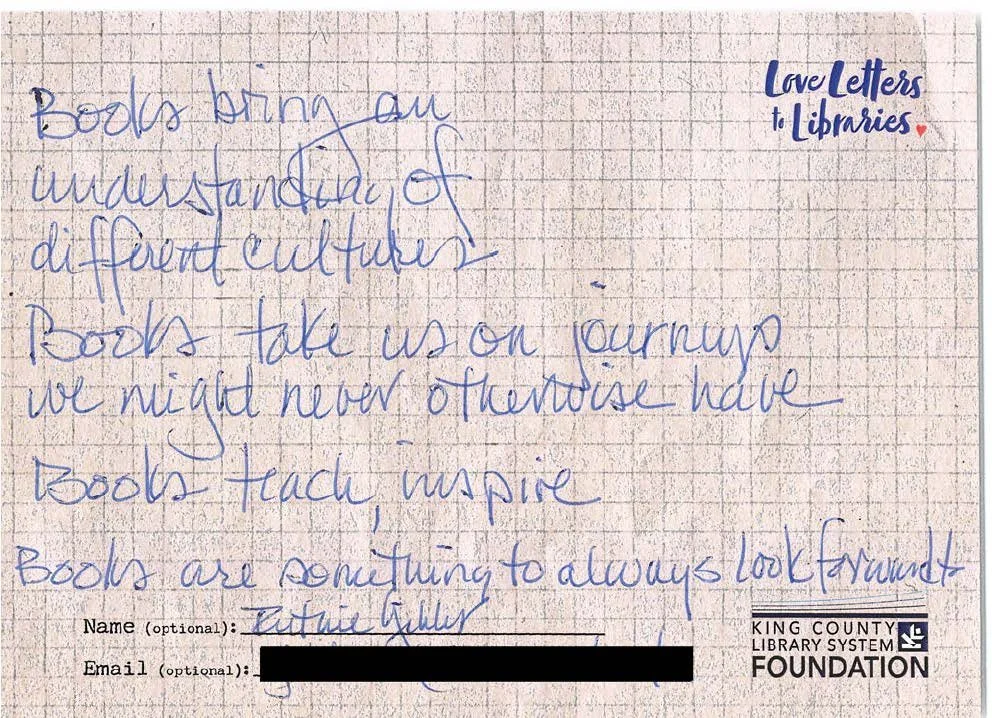 Love Letters
to Libraries
Books bring an
understanding of
different cultures
Books take us on journeys
we might never otherwise have
Books teach, inspire
Books are something to always look forward to
Name (optional):
Email (optional):
KING COUNTY
LIBRARY SYSTEM
FOUNDATION